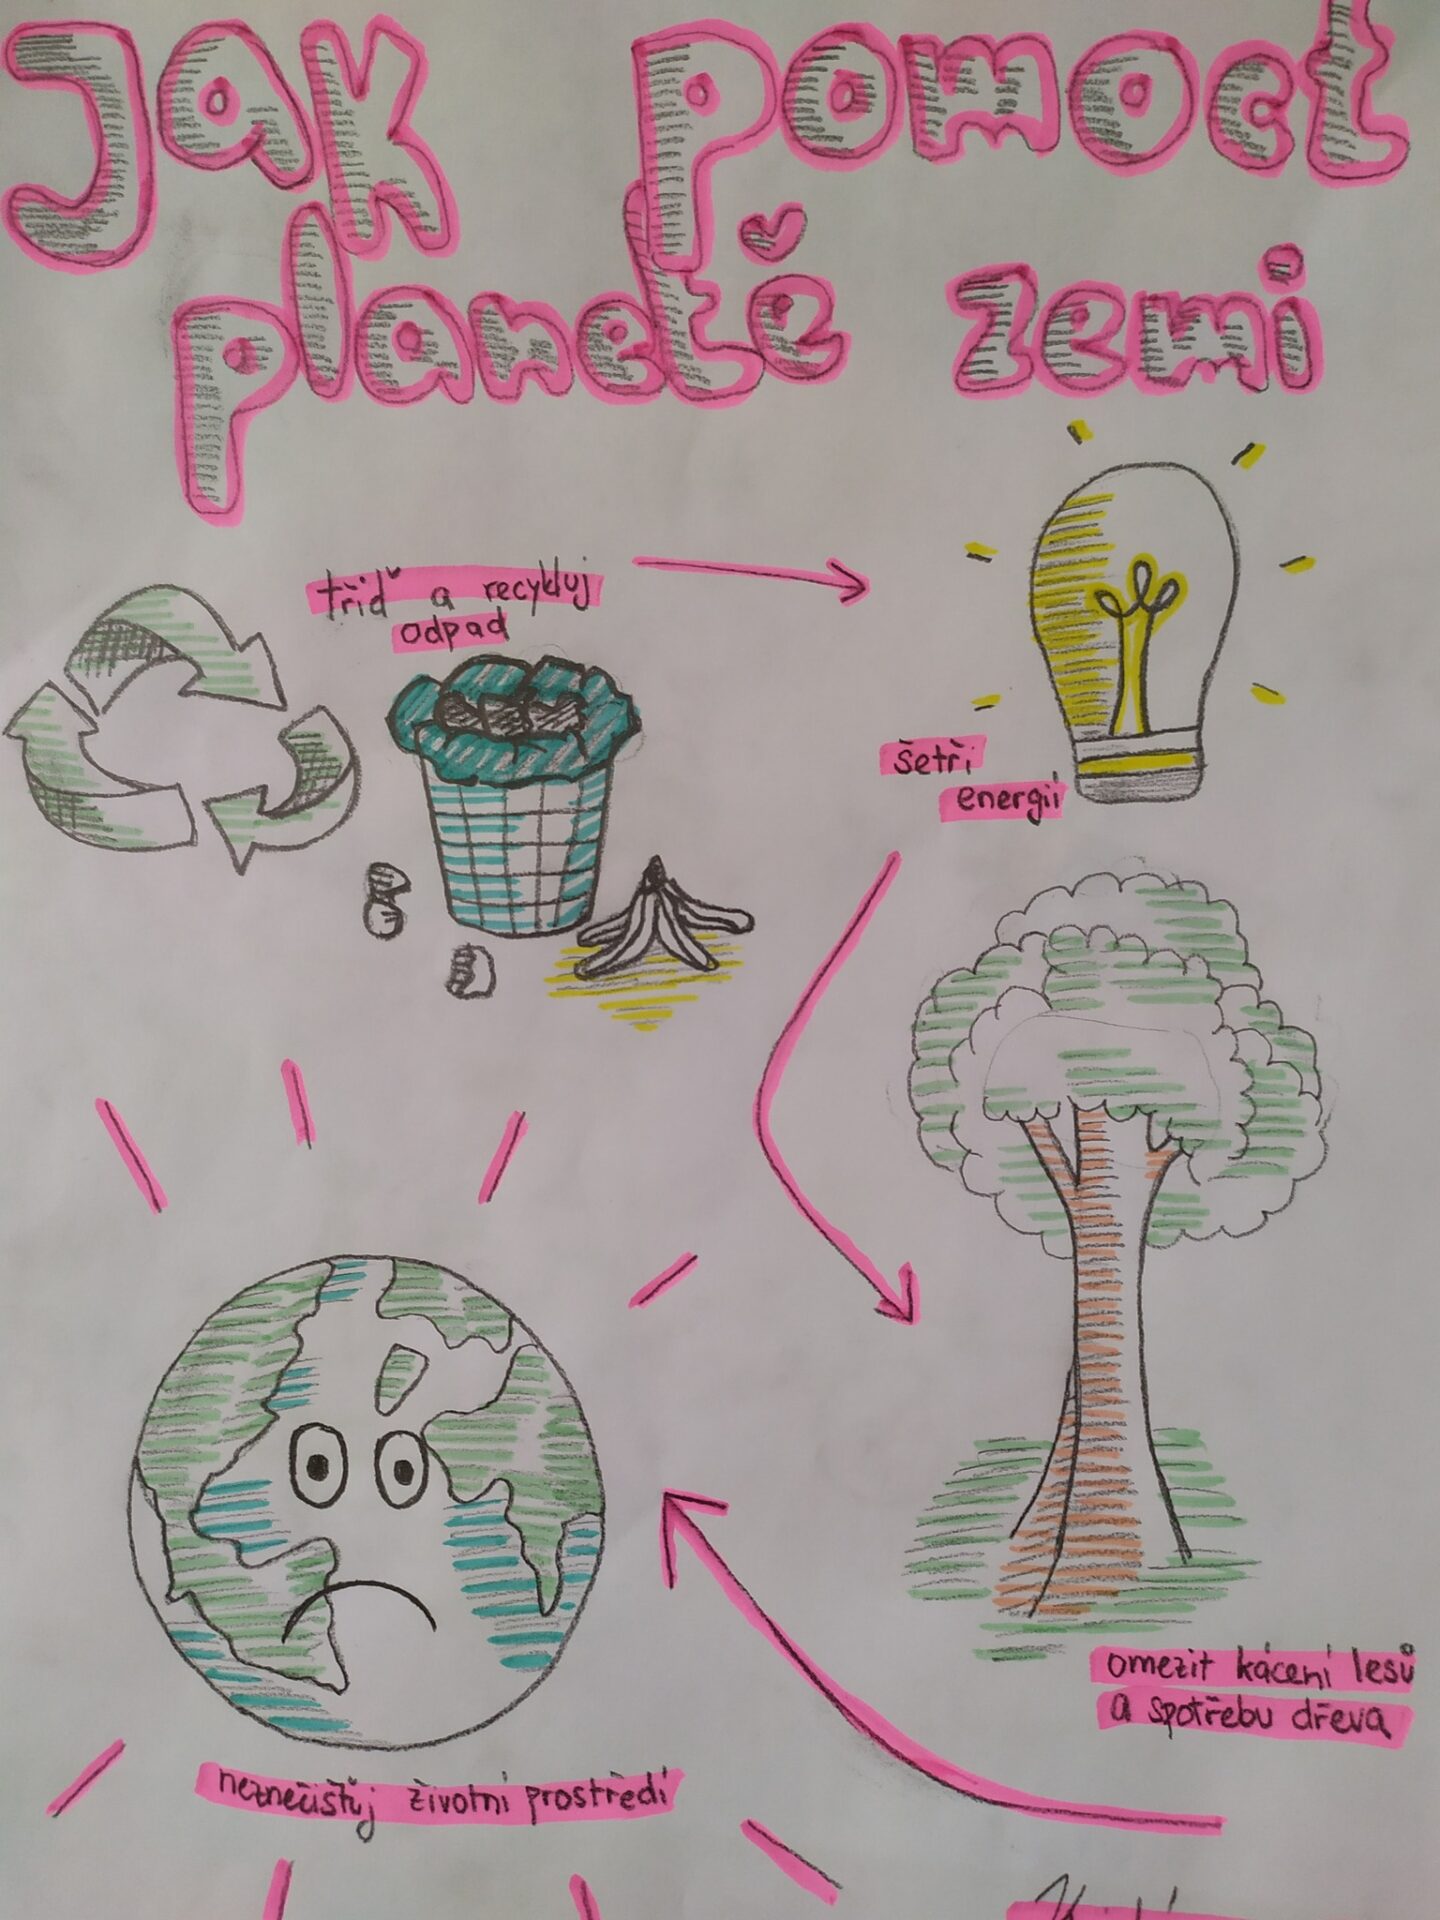 Jak pomoct
planetě zemi
třiď a recykluj
odpad
šetři
energii
omezit kácení lesů
a spotřebu dřeva
neznečišťuj životní prostředí